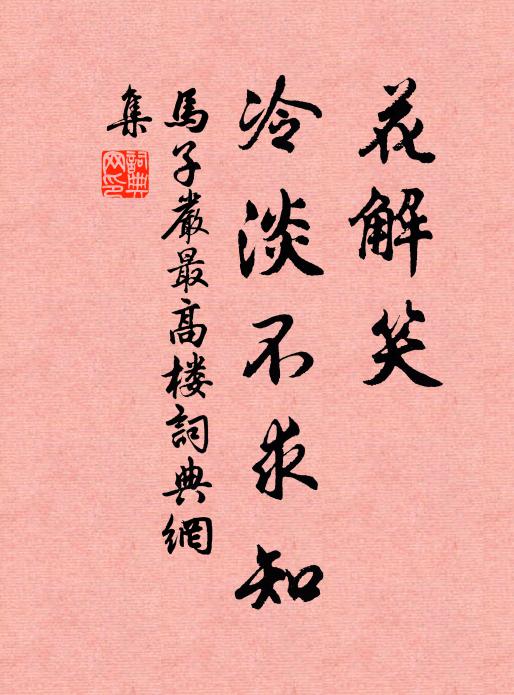 花解笑
冷淡不求知
馬子嚴最高楼詞典網
集
詞典
网印